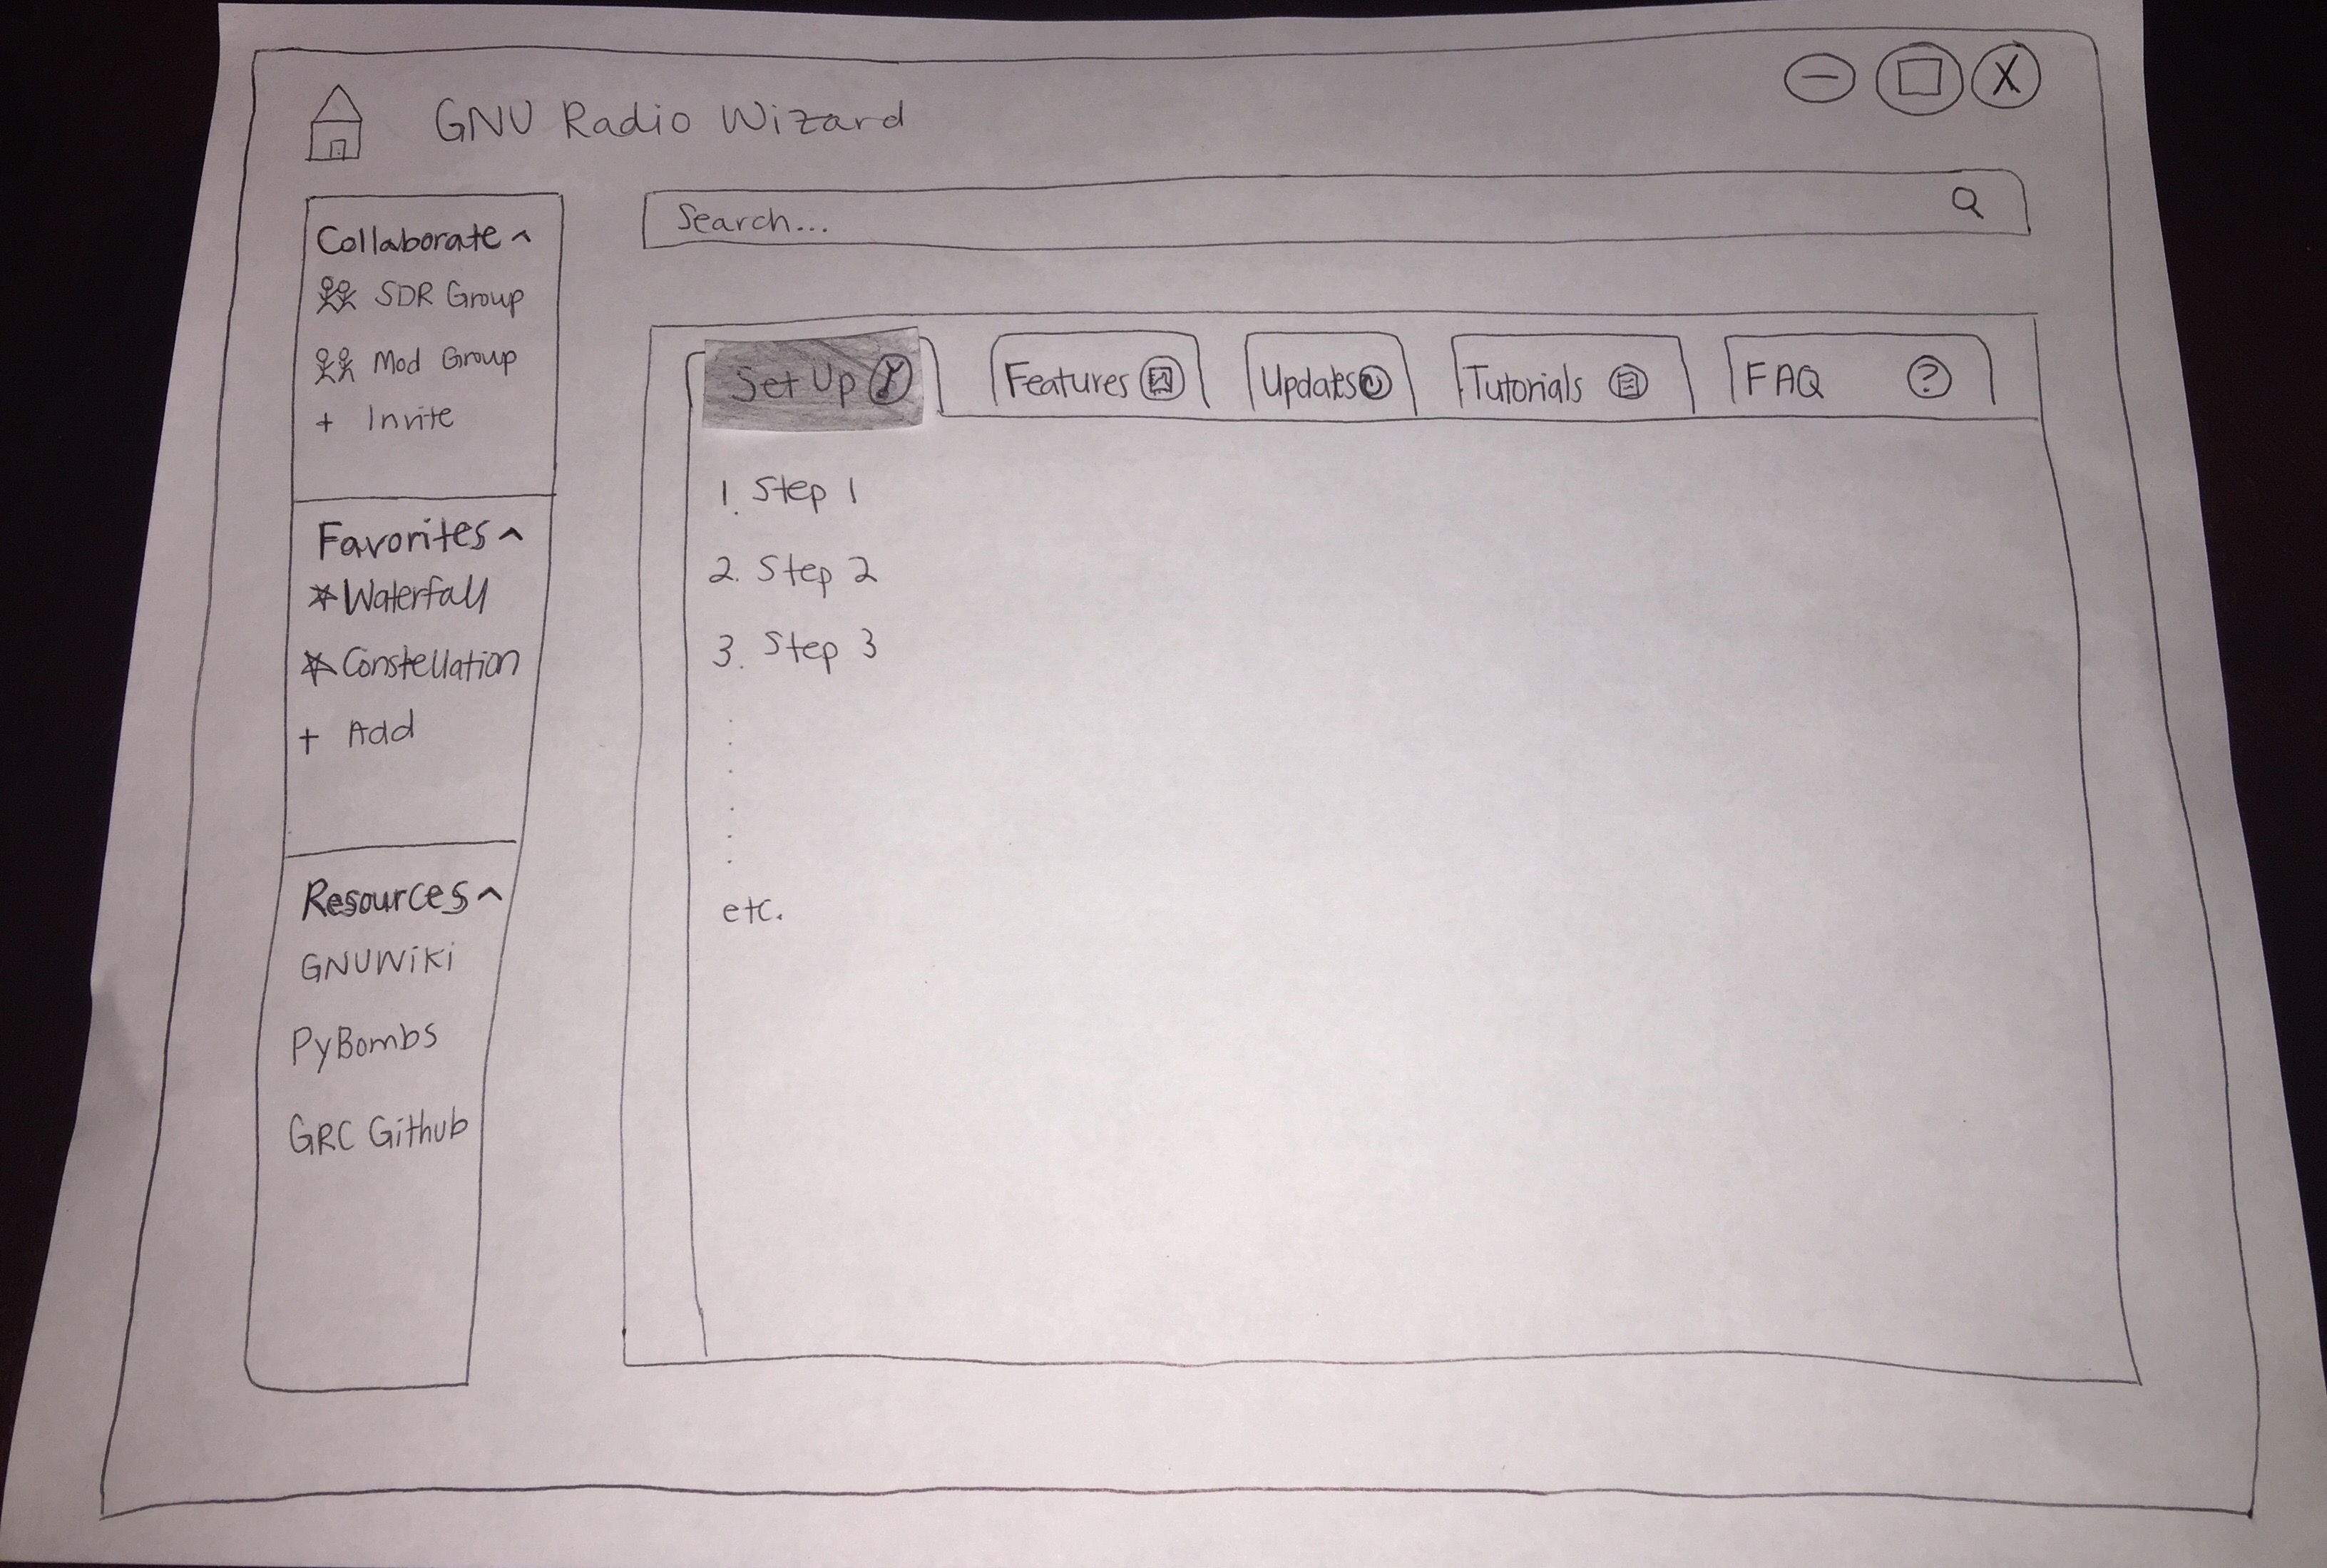 GNU Radio Wizard
X
Search...
Collaborate ^
SDR Group
Mod Group
+ Invite
Favorites ^
Waterfall
Constellation
+ Add
Resources ^
GNUWiki
PyBombs
GRC Github
Set Up
Features
Updates
Tutorials
FAQ ?
1. Step 1
2. Step 2
3. Step 3
.
.
.
.
.
etc.